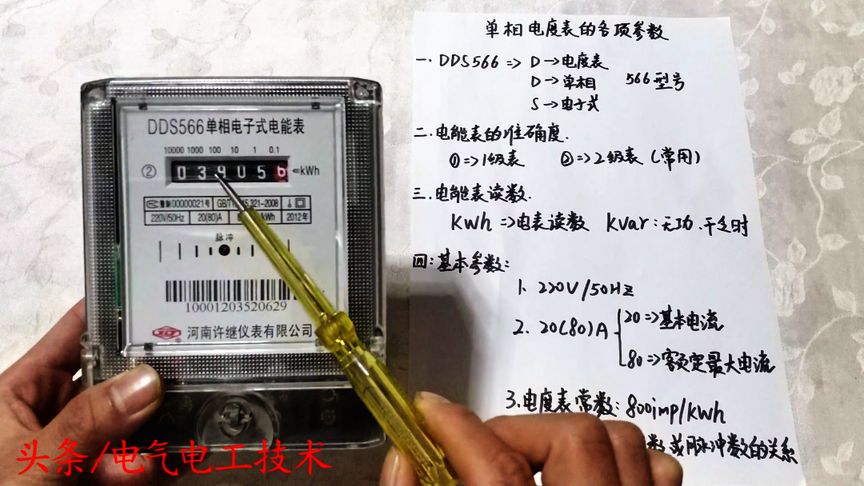 DDS566单相电子式电能表
10000 1000 100 10 1 0.1
② 039056 kWh
豫制00000021号 GB/T 321-2008
220V/50Hz 20(80)A kWh 2012年
脉冲
10001203520629
河南许继仪表有限公司
头条/电气电工技术
单相电度表的各项参数
一. DDS566 => D→电度表
D→单相 566型号
S→电子式
二.电能表的准确度.
①=>1级表 ②=>2级表(常用)
三.电能表读数.
KWh =>电表读数 kvar:无功.千乏时
四:基本参数:
1. 220V/50HZ
2. 20(80)A 20=>基本电流
80=>额定最大电流
3.电度表常数: 800imp/kWh
数或脉冲数的关系